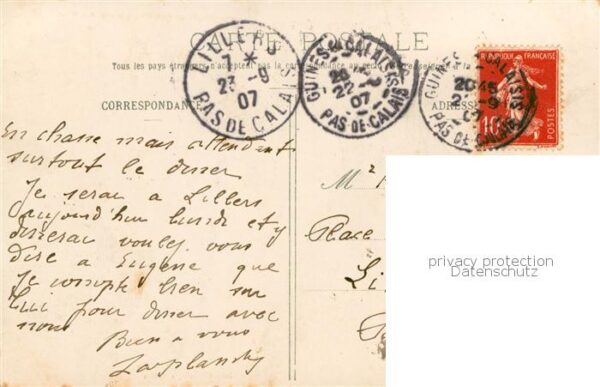 CARTE POSTALE
Tous les pays étrangers n'acceptent pas la correspondance au
CORRESPONDANCE
ADRESSE
LILLERS
7
23 -9
07
PAS DE CALAIS
GUINES
22 -9
07
PAS-DE-CALAIS
GUINES
20 45
PAS-DE-CALAIS
10
POSTES
En chasse mais attendant
surtout le diner
Je serai à Lillers
aujourd'hui lundi et y
dinerai voulez vous
dire à Eugène que
Je compte bien sur
Lui pour diner avec
nous
Bien à vous
Place
Li
privacy protection
Datenschutz